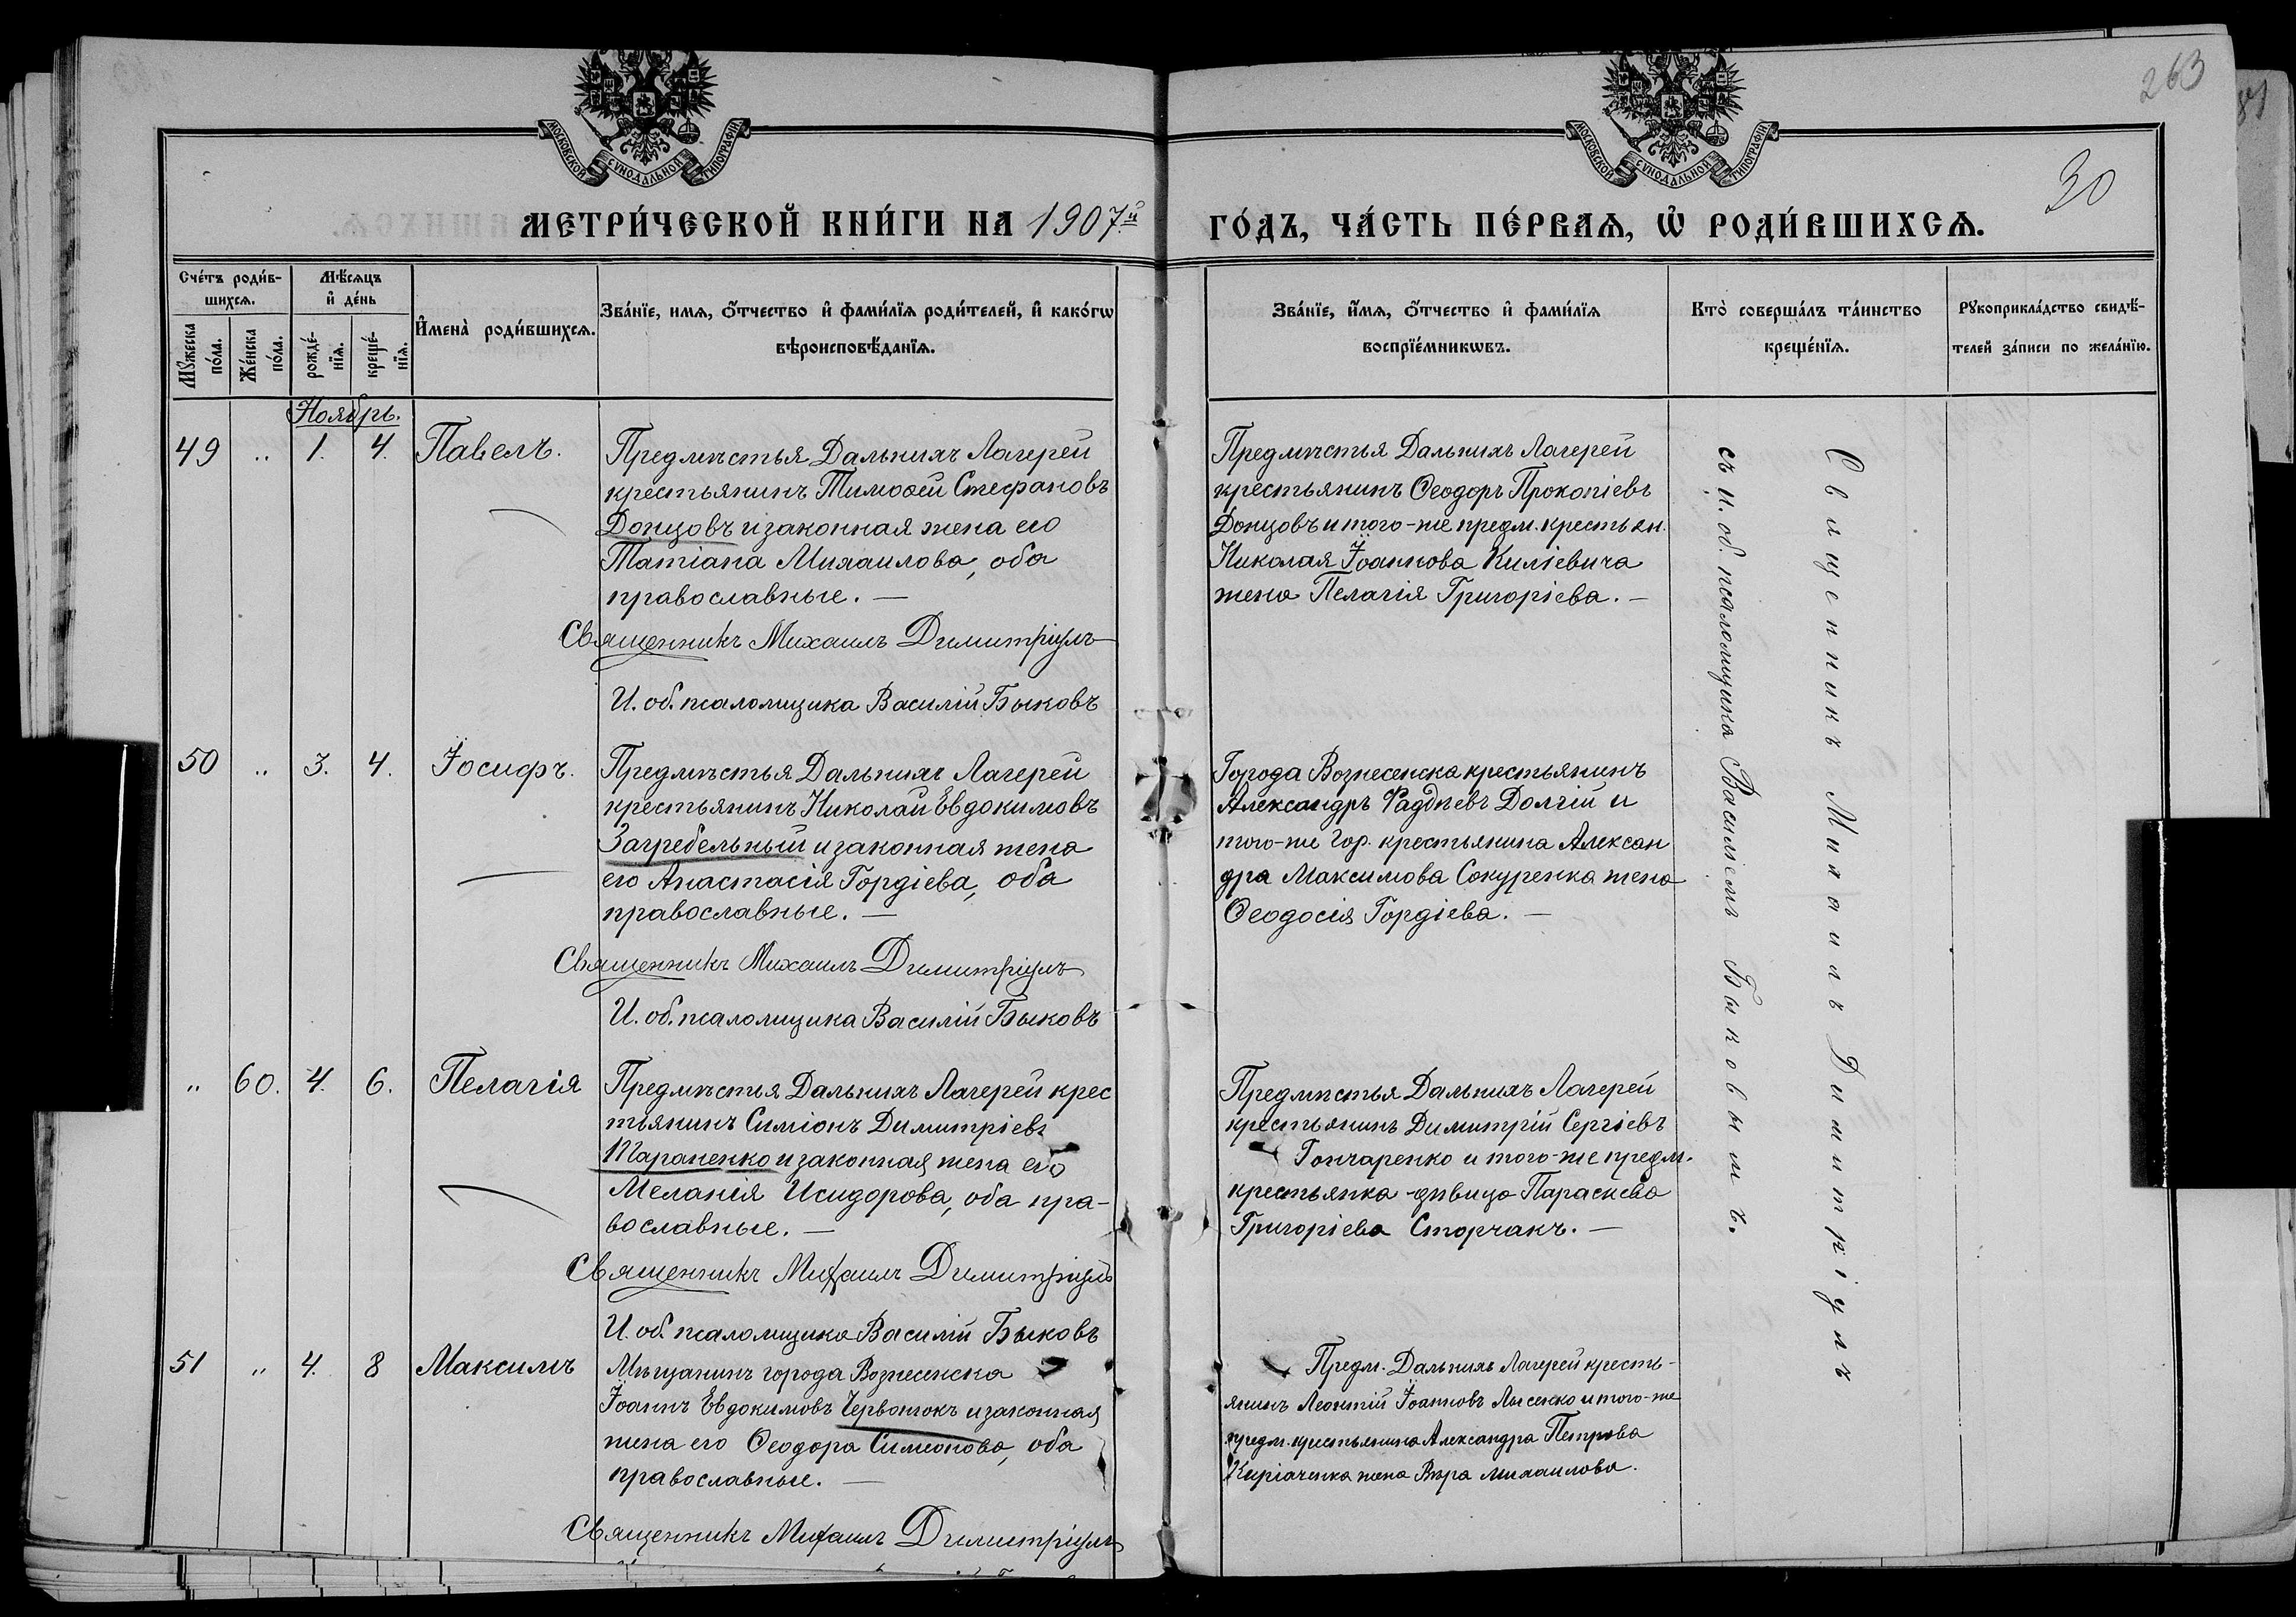 263
30
МОСКОВСКОЙ СУНОДАЛЬНОЙ ТИПОГРАФІИ
МОСКОВСКОЙ СУНОДАЛЬНОЙ ТИПОГРАФІИ
МЕТРИ́ЧЕСКОЙ КНИ́ГИ НА 1907й ГО́ДЪ, ЧА́СТЬ ПЕ́РВАѦ, Ѡ҆ РОДИ́ВШИХСѦ.
Сче́тъ роди́в-
шихсѧ.
Мꙋжеска
по́ла.
Же́нска
по́ла.
Мѣ́сѧцъ
и҆ де́нь
рожде́-
нїѧ.
креще́-
нїѧ.
И҆мена̀ роди́вшихсѧ.
Зва́нїе, имѧ, ѻ҆́тчество и҆ фами́лїѧ роди́телей, и҆ како́гѡ
вѣроисповѣ́данїѧ.
Зва́нїе, и҆́мѧ, ѻ҆́тчество и҆ фами́лїѧ
воспрїе́мникѡвъ.
Кто̀ соверша́лъ та́инство
креще́нїѧ.
Рꙋкоприкла́дство свидѣ́-
телей за́писи по жела́нїю.
Ноябрь.
49 „ 1. 4. Павелъ.
Предмѣстья Дальнихъ Лагерей
крестьянинъ Тимоѳей Стефановъ
Донцовъ и законная жена его
Татіана Михаилова, оба
православные. —
Священникъ Михаилъ Димитріулъ
И. об. псаломщика Василій Быковъ
Предмѣстья Дальнихъ Лагерей
крестьянинъ Ѳеодоръ Прокопіевъ
Донцовъ и того-же предм. крестьян.
Николая Іоаннова Киліевича
жена Пелагія Григоріева. —
50 „ 3. 4. Іосифъ.
Предмѣстья Дальнихъ Лагерей
крестьянинъ Николай Евдокимовъ
Загребельный и законная жена
его Анастасія Гордіева, оба
православные. —
Священникъ Михаилъ Димитріулъ
И. об. псаломщика Василій Быковъ
Города Вознесенска крестьянинъ
Александръ Фаддѣевъ Долгій и
того-же гор. крестьянина Алексан
дра Максимова Сокуренка жена
Ѳеодосія Гордіева. —
„ 60. 4. 6. Пелагія
Предмѣстья Дальнихъ Лагерей крес
тьянинъ Симіонъ Димитріевъ
Тараненко и законная жена его
Меланія Исидорова, оба пра-
вославные. —
Священникъ Михаилъ Димитріулъ
И. об. псаломщика Василій Быковъ
Предмѣстья Дальнихъ Лагерей
крестьянинъ Димитрій Сергіевъ
Гончаренко и того-же предм.
крестьянка дѣвица Параскева
Григоріева Сторчакъ. —
51 „ 4. 8 Максимъ
Мѣщанинъ города Вознесенска
Іоаннъ Евдокимовъ Червонюкъ и законная
жена его Ѳеодора Симеонова, оба
православные. —
Священникъ Михаилъ Димитріулъ
Предм. Дальнихъ Лагерей кресть-
янинъ Леонтій Іоанновъ Лысенко и того-же
предм. крестьянина Александра Петрова
Киріаченка жена Вѣра Михаилова.
Священникъ Михаилъ Димитріулъ
съ И. об. псаломщика Василіемъ Быковымъ.